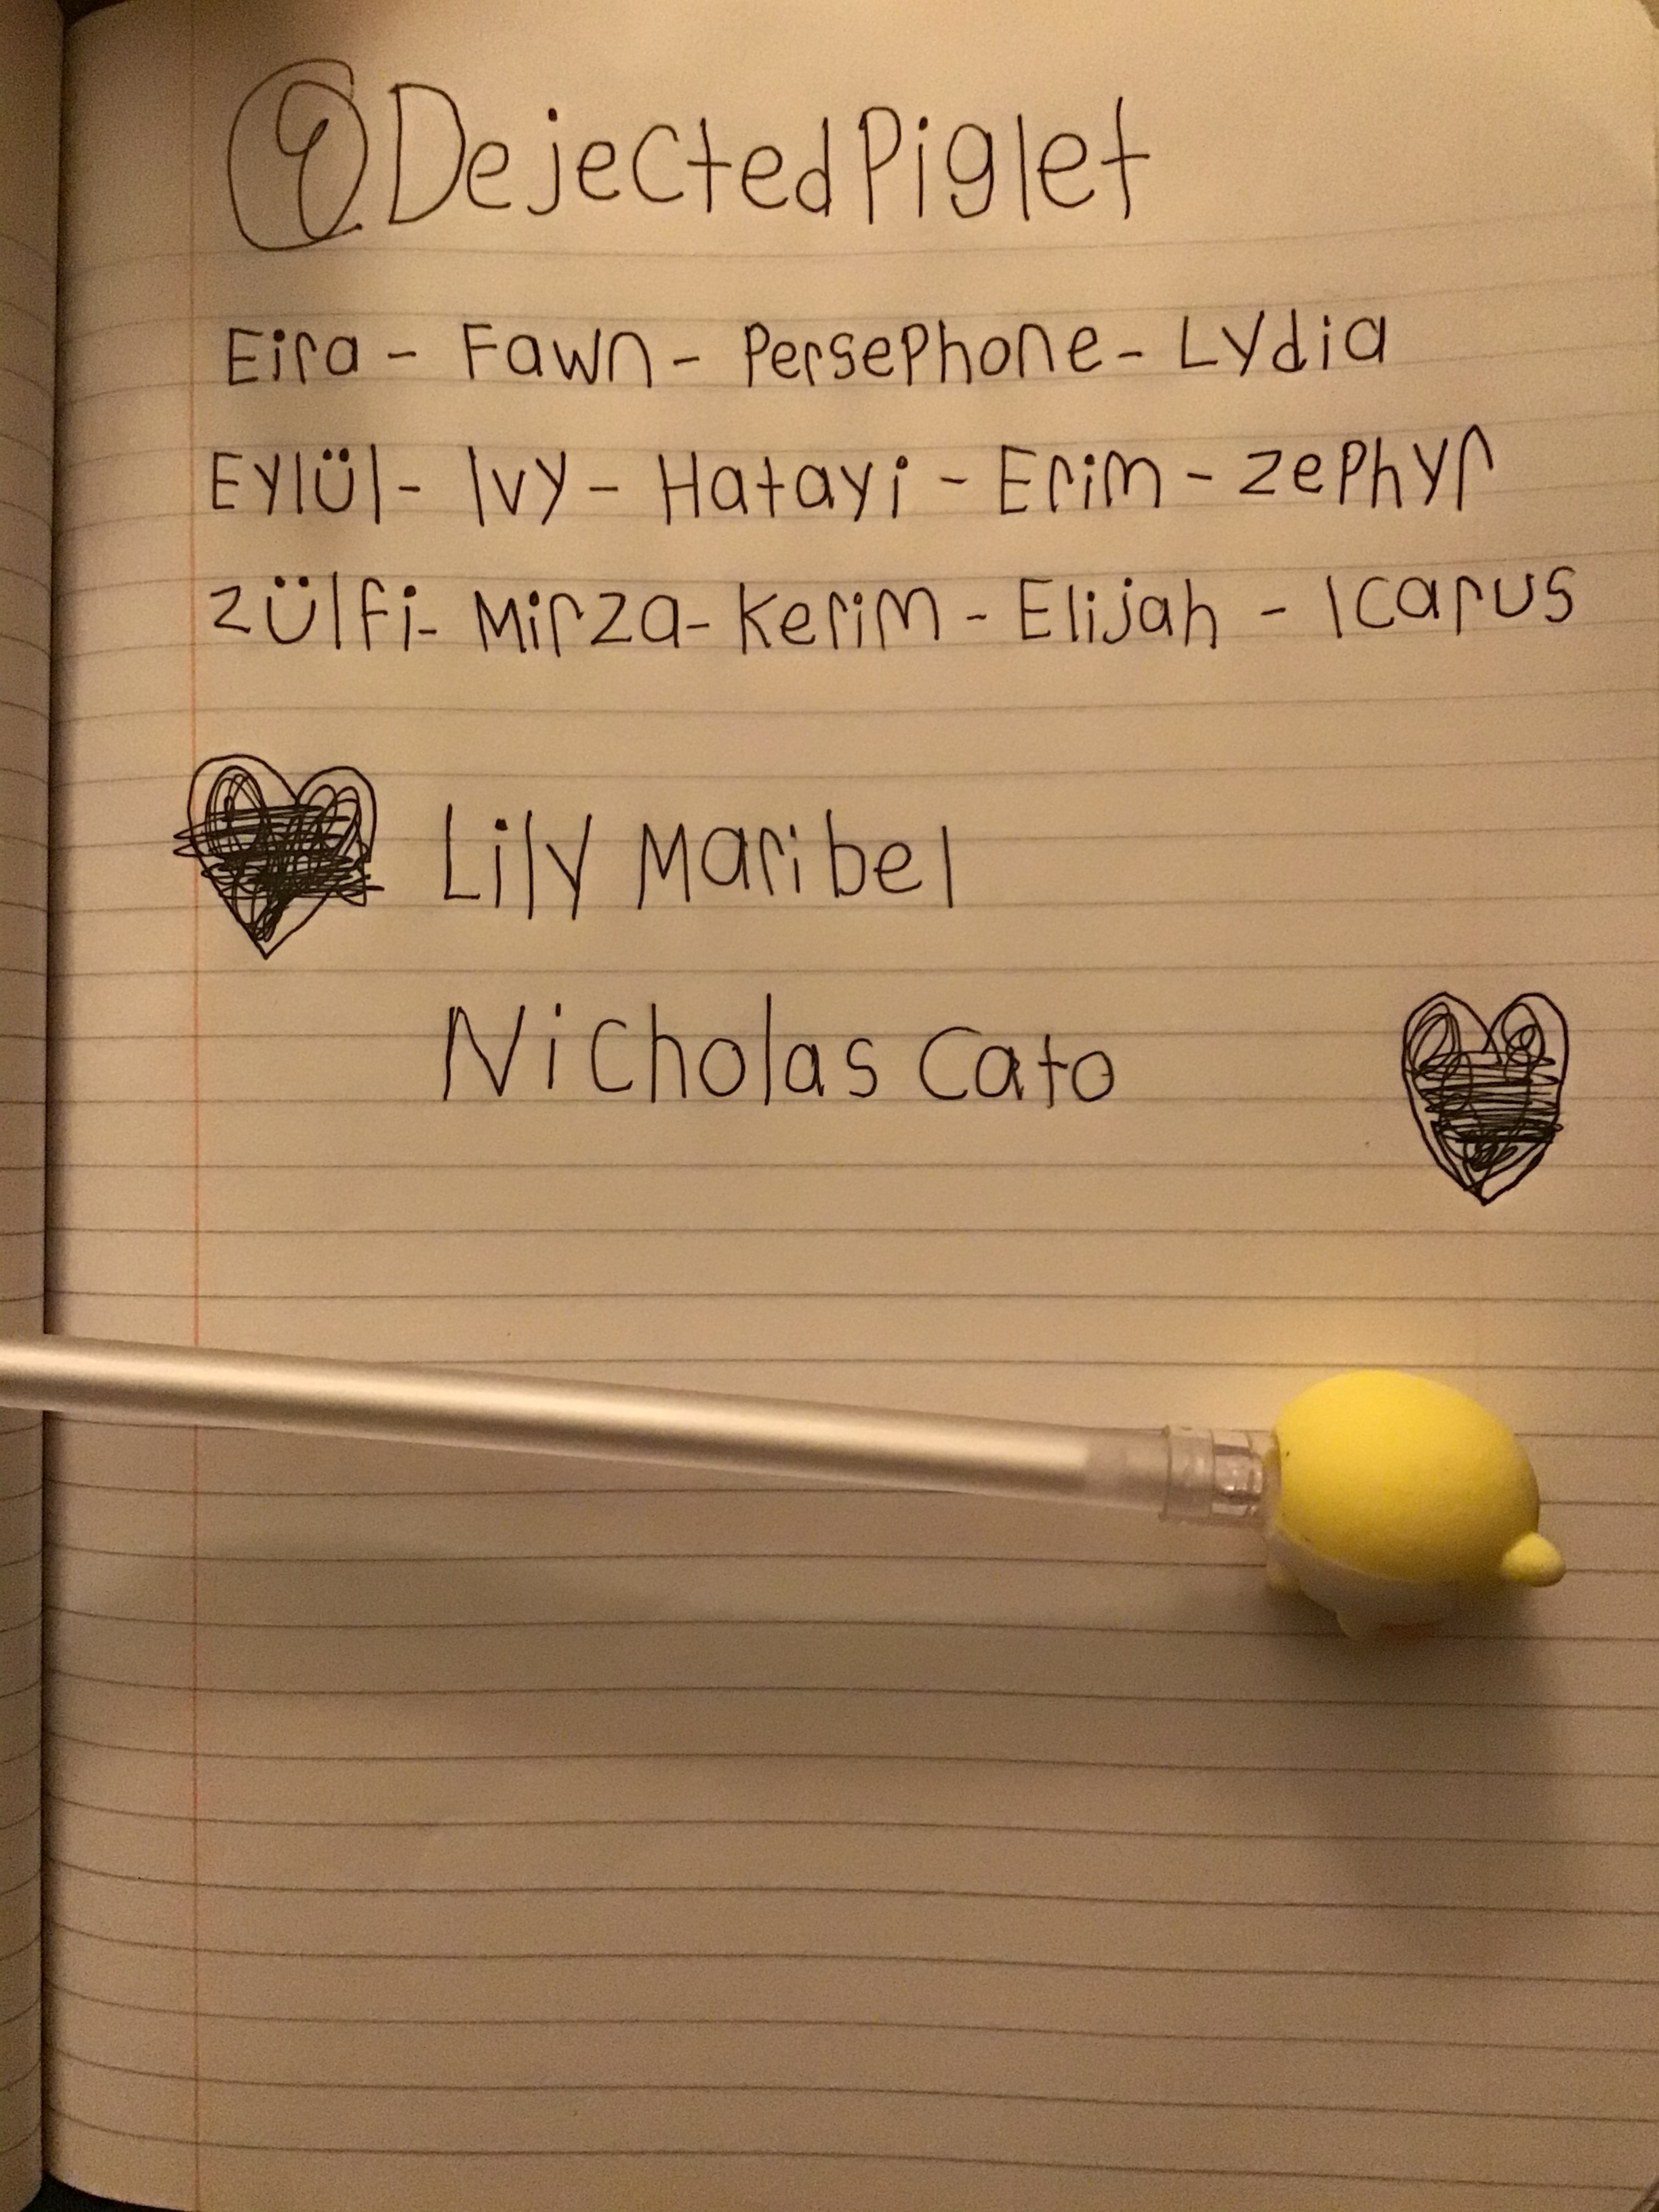 @DejectedPiglet
Eira - Fawn - Persephone - Lydia
Eylül - Ivy - Hatayi - Erim - Zephyr
Zülfi - Mirza - Kerim - Elijah - Icarus
Lily Maribel
Nicholas Cato